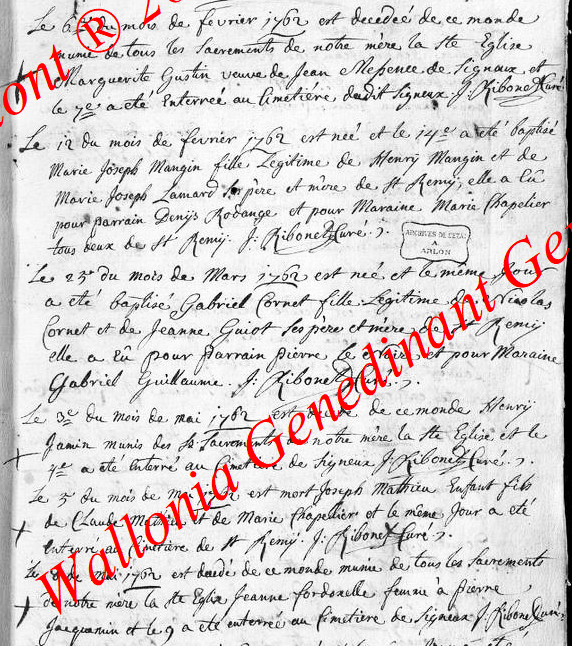 Le 6e du mois de fevrier 1762 est decedeé de ce monde
munie de tous les Sacrements de notre mère la Ste Eglise
Marguerite Gustin veuve de Jean Mesence de Signaux et
le 7e a été Enterreé au Cimetiére dudit Signeux J. Ribonet Curé
Le 12 du mois de fevrier 1762 est neé et le 14e a été baptisé
Marie Joseph Mangin fille Legitime de Henry Mangin et de
Marie Joseph Lamard ses père et mère de St Remij, elle a Eû
pour parrain Denijs Rodange et pour Maraine Marie Chapelier
tous deux de St Remij. J. Ribonet Curé.
ARCHIVES DE L'ETAT
A
ARLON
Le 23e du mois de Mars 1762 est neé et le même Jour
a été baptisé Gabriel Cornet fille Legitime de Nicolas
Cornet et de Jeanne Guiot ses père et mère de St Remij
elle a Eû pour parrain pierre et pour Maraine
Gabriel Guillaume. J. Ribonet Curé.
Le 3e du mois de mai 1762 est de ce monde Henrij
Jamin munis des St Sacrements de notre mère la Ste Eglise et le
4e a été Enterré au Cimetiére de Signeux J. Ribonet Curé.
Le 5 du mois de Mai 1762 est mort Joseph Mathieu Enfant fils
de Claude Mathieu et de Marie Chapellier et le même Jour a été
Enterré au Cimetiére de St Remij. J. Ribonet Curé.
Le de Mai 1762 est decedé de ce monde munie de tous les Sacrements
de notre mère la Ste Eglise Jeanne femme à pierre
Jacquemin et le 9 a été enterreé au Cimetiére de Signeux J. Ribonet Curé
Wallonia Genedinant Gen
ont ® 2